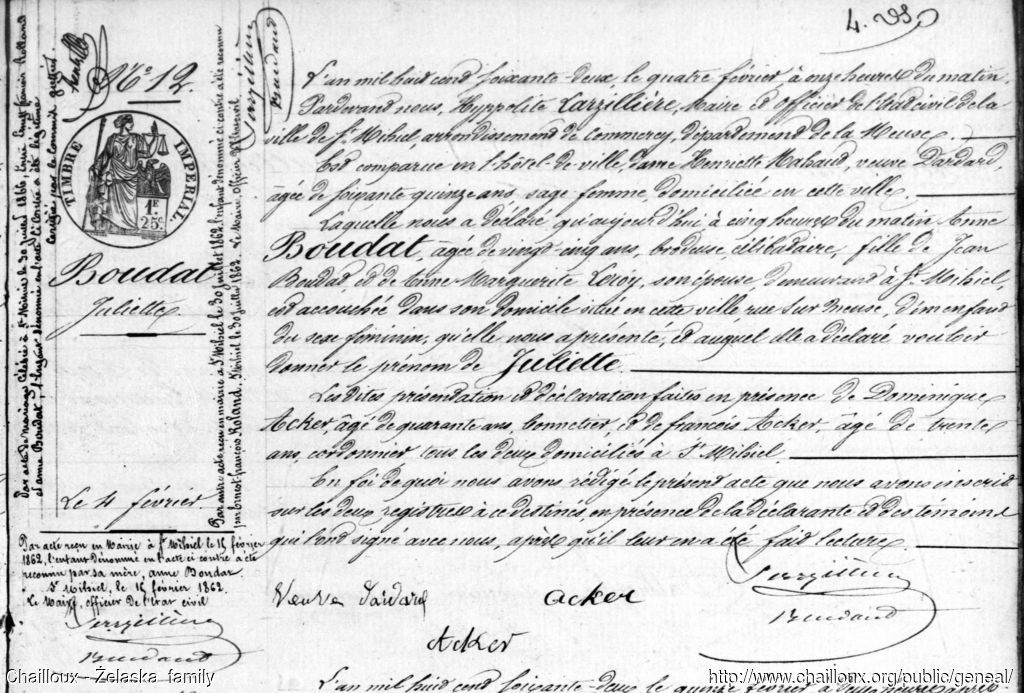 4. DS
N° 12.
TIMBRE IMPERIAL
1F
25c.
Boudat
Juliette
Le 4 février
L'an mil huit cent soixante-deux, le quatre février à onze heures du matin,
Pardevant nous, Hyppolite Larzillière, Maire et officier de l'état civil de la
ville de St. Mihiel, arrondissement de Commercy, département de la Meuse.
Est comparue en l'hôtel de ville, Dame Henriette Mahaud, veuve Dardard,
âgée de soixante quinze ans, sage femme, domiciliée en cette ville.
Laquelle nous a déclaré qu'aujourd'hui à cinq heures du matin Anne
Boudat, âgée de vingt-cinq ans, brodeuse, célibataire, fille de Jean
Boudat, et de dame Marguerite Loroy, son épouse, demeurant à St. Mihiel,
est accouchée dans son domicile sitée en cette ville rue sur Meuse, d'un enfant
du sexe feminin, qu'elle nous a présenté, et auquel elle a déclaré vouloir
donner le prénom de Juliette.
Les dites présentation et déclaration faites en présence de Dominique
Acker, âgé de quarante ans, bonnetier, et de françois Acker, âgé de trente
ans, cordonnier tous les deux domiciliés à St. Mihiel.
En foi de quoi nous avons rédigé le présent acte que nous avons inscrit
sur les deux registres à ce destinés, en présence de la déclarante et des témoins
qui l'ont signé avec nous, après qu'il leur en a été fait lecture.
Veuve Dardard
acker
Acker
Par acte reçu en Mairie à St. Mihiel le 15 février
1862, l'enfant dénommé en l'acte ci contre a été
reconnu par sa mère, anne Boudat.
St. Mihiel, le 15 février 1862.
Le Maire, officier de l'état civil
Par autre acte reçu en mairie à St. Mihiel le 30 juillet 1862, l'enfant dénommé ci contre a été reconnu
par Ernest françois Rolland. St. Mihiel le 30 juillet 1862. Le Maire, officier de l'état civil.
Par acte de mariage célébré à St. Mihiel le 30 juillet 1866 entre Ernest françois Rolland
et anne Boudat l'enfant dénommé en l'acte ci contre a été légitimé
L'an mil huit cent soixante-deux le quinze février à deux heures
Chailloux - Żelaska family
http://www.chailloux.org/public/geneal/